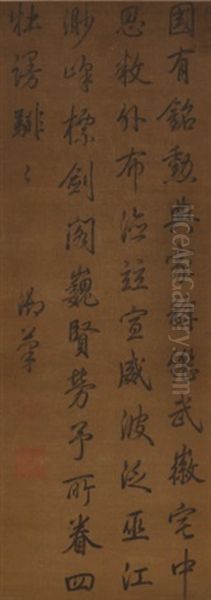 國有銘勳典懋武徽宅中
思敉外布宣威波泛巫江
渺峰標劍閣巍賢勞予所眷四
牡謾騑〻
御筆
NiceArtGallery.com